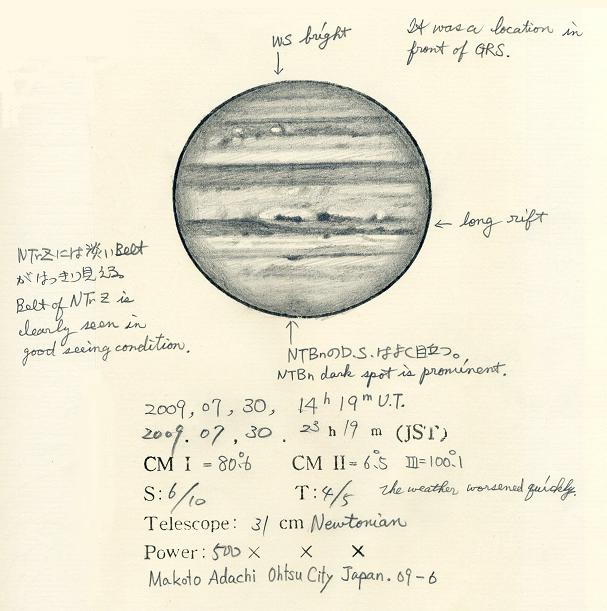 WS bright
It was a location in
front of GRS.
long rift
NTrZには淡いBelt
がはっきり見える。
Belt of NTrZ is
clearly seen in
good seeing condition.
NTBnのD.S.はよく目立つ。
NTBn dark spot is prominent.
2009, 07, 30, 14h 19m U.T.
2009. 07, 30. 23 h 19 m (JST)
CM I = 80.°6 CM II = 6.°5 III=100.°1
S: 6/10 T: 4/5 the weather worsened quickly.
Telescope: 31 cm Newtonian
Power: 500 × × ×
Makoto Adachi Ohtsu City Japan. 09-6